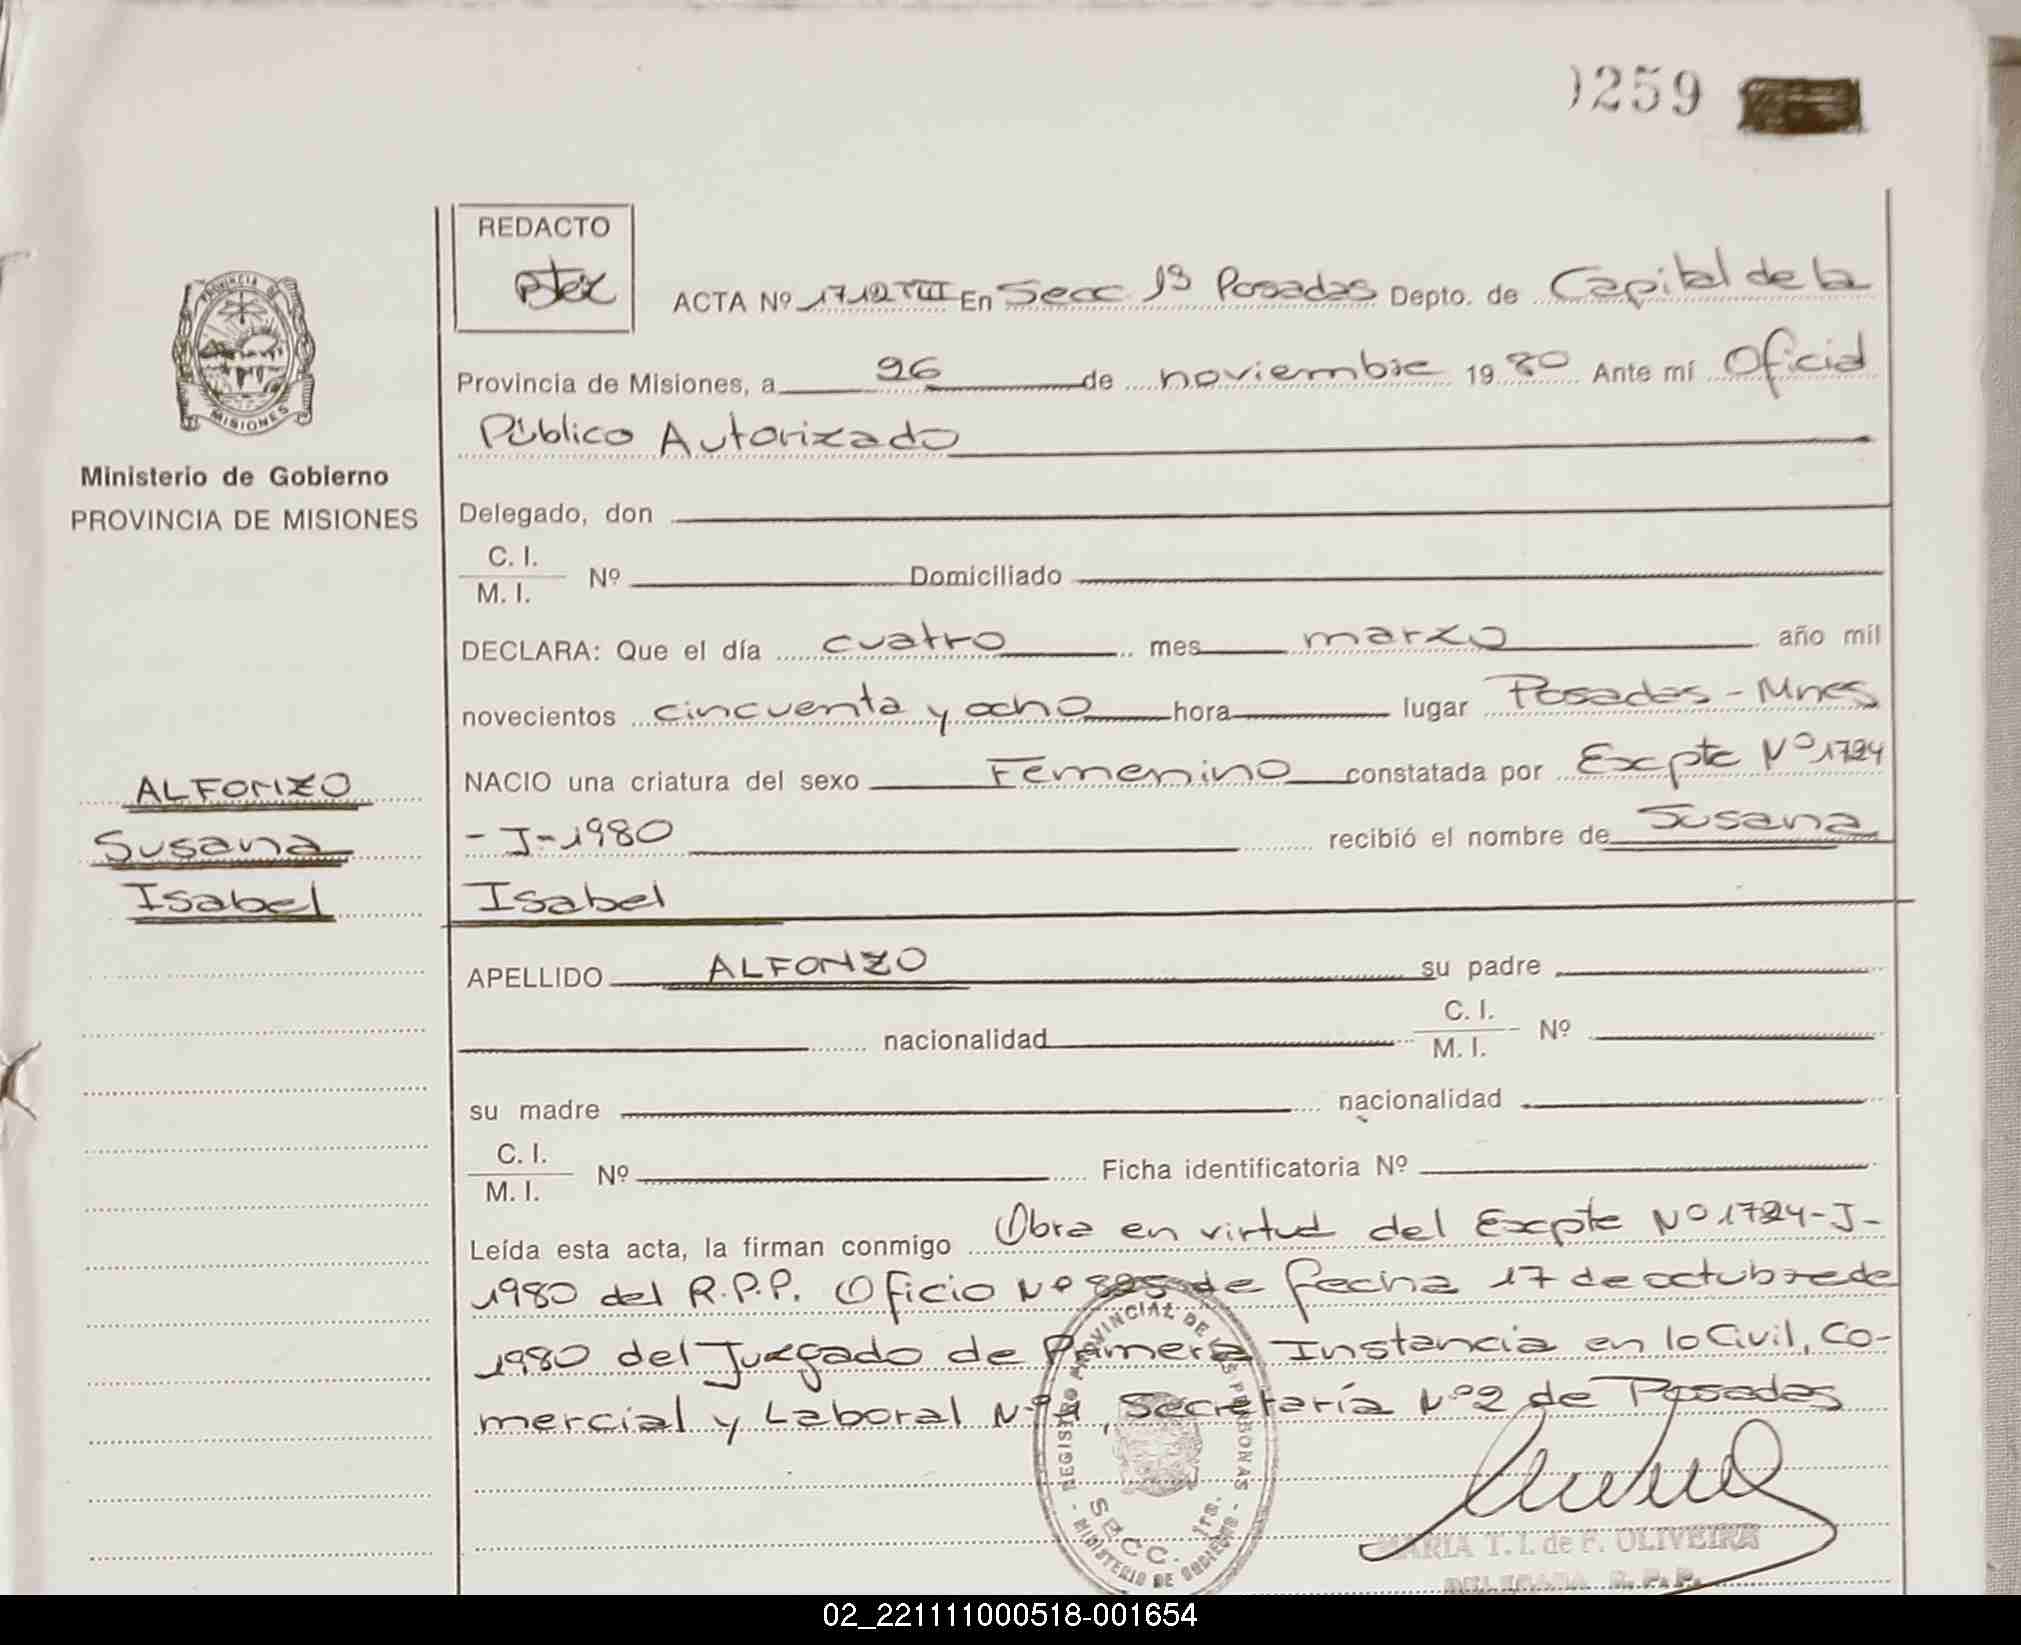 0259
REDACTO
ACTA Nº 1712 TVIII En Secc 1ª Posadas Depto. de Capital de la
PROVINCIA DE
MISIONES
Provincia de Misiones, a 26 de noviembre 1980 Ante mí Oficial
Público Autorizado
Ministerio de Gobierno
PROVINCIA DE MISIONES
Delegado, don
C. I.
M. I. Nº Domiciliado
DECLARA: Que el día cuatro mes marzo año mil
novecientos cincuenta y ocho hora lugar Posadas - Mnes
NACIO una criatura del sexo Femenino constatada por Expte Nº 1724
- J - 1980 recibió el nombre de Susana
Isabel
ALFONZO
Susana
Isabel
APELLIDO ALFONZO su padre
nacionalidad C. I.
M. I. Nº
su madre nacionalidad
C. I.
M. I. Nº Ficha identificatoria Nº
Leída esta acta, la firman conmigo Obra en virtud del Expte Nº 1724-J-
1980 del R.P.P. Oficio Nº 825 de fecha 17 de octubre de
1980 del Juzgado de Primera Instancia en lo Civil, Co-
mercial y Laboral Nº 1, Secretaría Nº 2 de Posadas
REGISTRO PROVINCIAL DE LAS PERSONAS
SECC. 1ra.
MINISTERIO DE GOBIERNO
MARIA T. I. de F. OLIVEIRA
DELEGADA R. P. P.
02_221111000518-001654